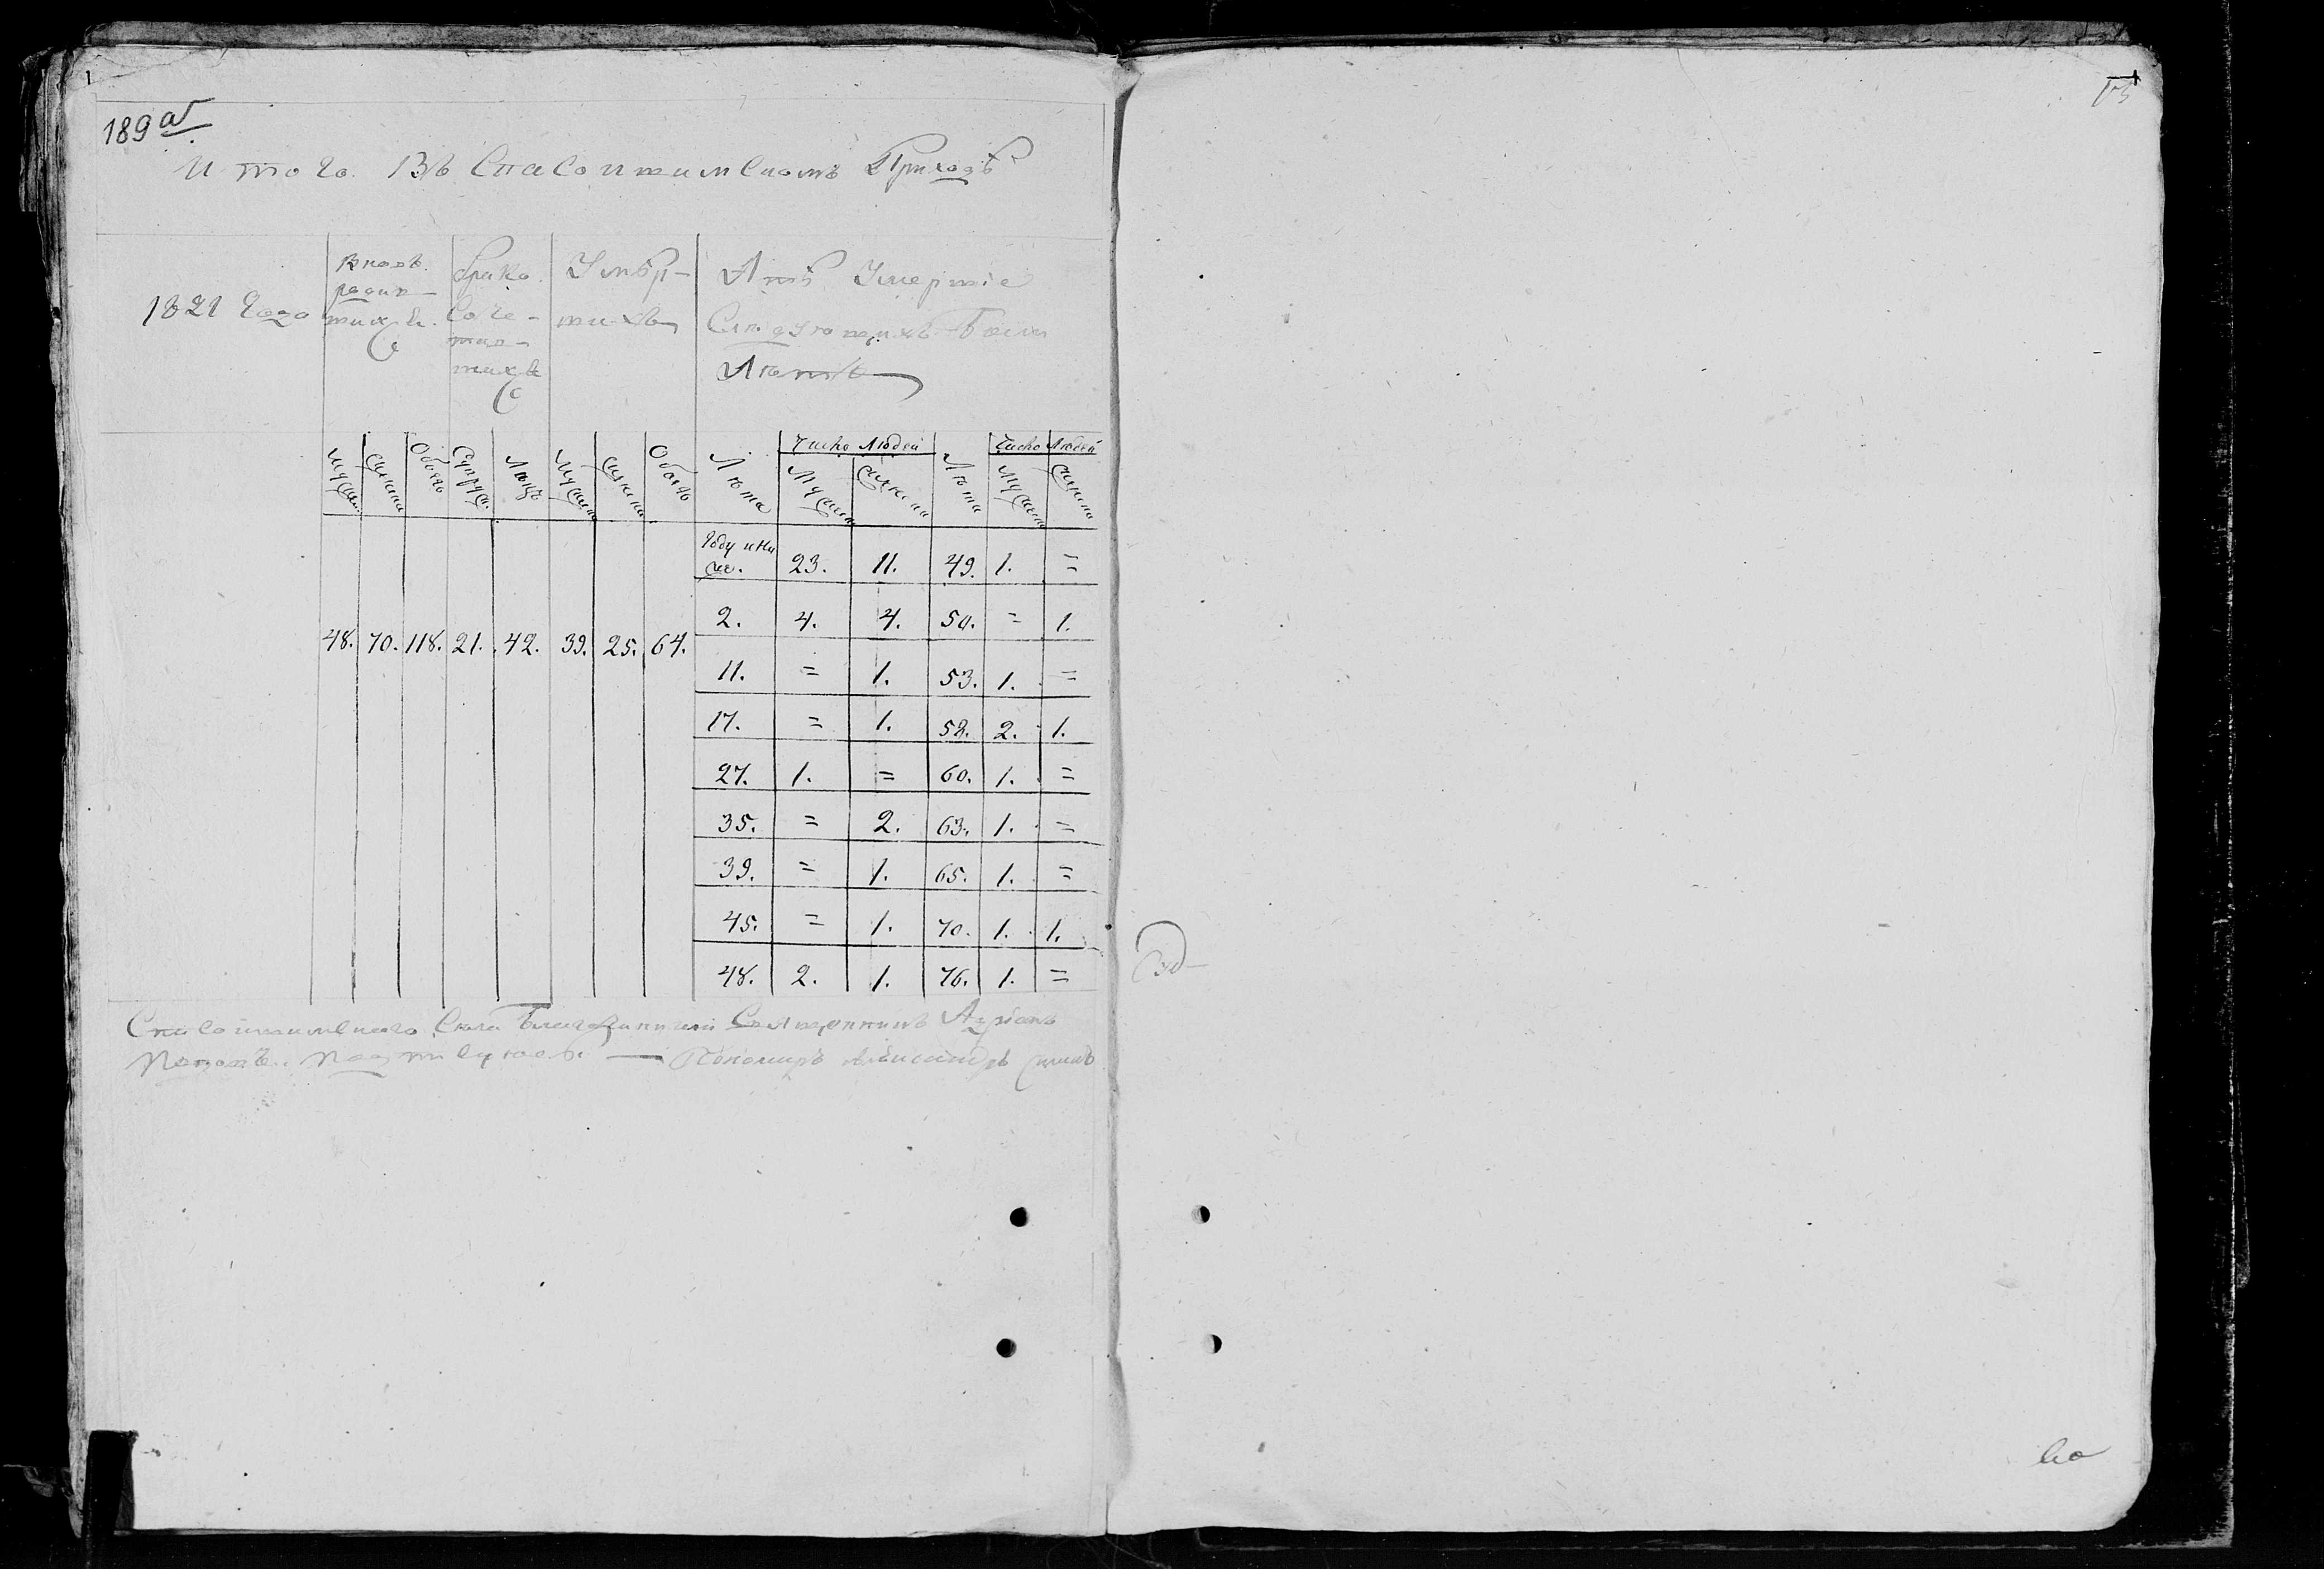 189 об
Итого Въ Спасоитимскомъ Приходѣ
1821 Года
Вновь родив-
шихся
Брако
соче-
тав-
шихся
Умѣр-
шихъ
Отъ Умертiе
Слѣдующихъ были
Лѣтъ
Мужеск. Женска Обоего Супруж. Лицъ Мужеска Женска Обоего
Лѣта Число Людей Лѣта Число Людей
Мужеска Женска Мужеска Женска
Году и ни
же. 23. 11. 49. 1. =
2. 4. 4. 50. = 1.
48. 70. 118. 21. 42. 39. 25. 64.
11. = 1. 53. 1. =
17. = 1. 58. 2. 1.
27. 1. = 60. 1. =
35. = 2. 63. 1. =
39. = 1. 65. 1. =
45. = 1. 70. 1. 1.
48. 2. 1. 76. 1. =
Села Благочинный Священникъ Адрiанъ
Поповъ. Пономарь